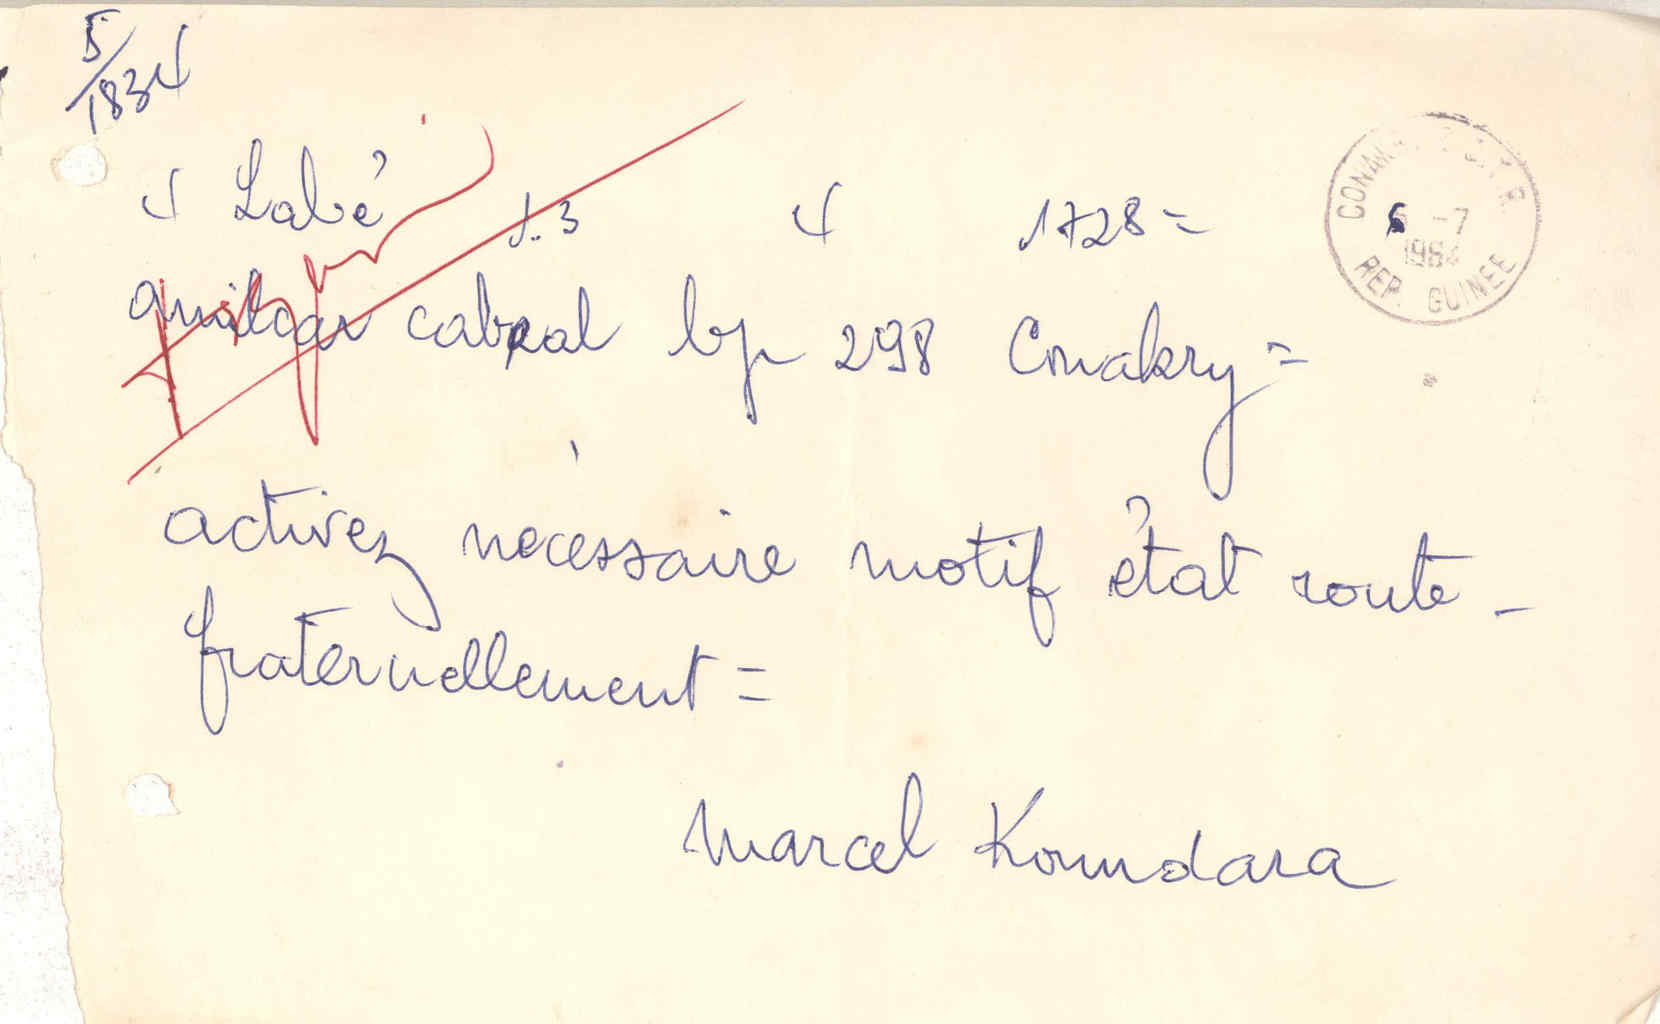 5/1834
4 Labé 13 4 1728=
amilcar cabral bp 298 Conakry=
activez nécessaire motif état route -
fraternellement=
Marcel Koundara
CONAKRY
6 -7
1984
REP. GUINEE